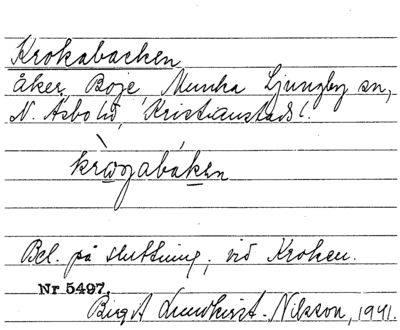 Krokabacken
åker, Boje, Munka Ljungby sn,
N. Åsbo hd, Kristianstads l.
Bel. på sluttning, vid Kroken.
Nr 5497.
Birgit Lundkvist-Nilsson, 1941.